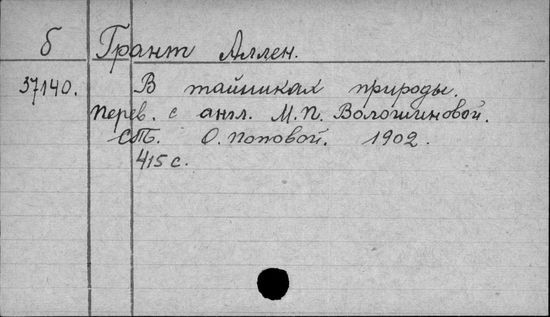 б Грант Аллен.
37140. В тайниках природы.
Перев. с англ. М. П. Волошиновой.
СПб. О. Поповой. 1902.
415 с.